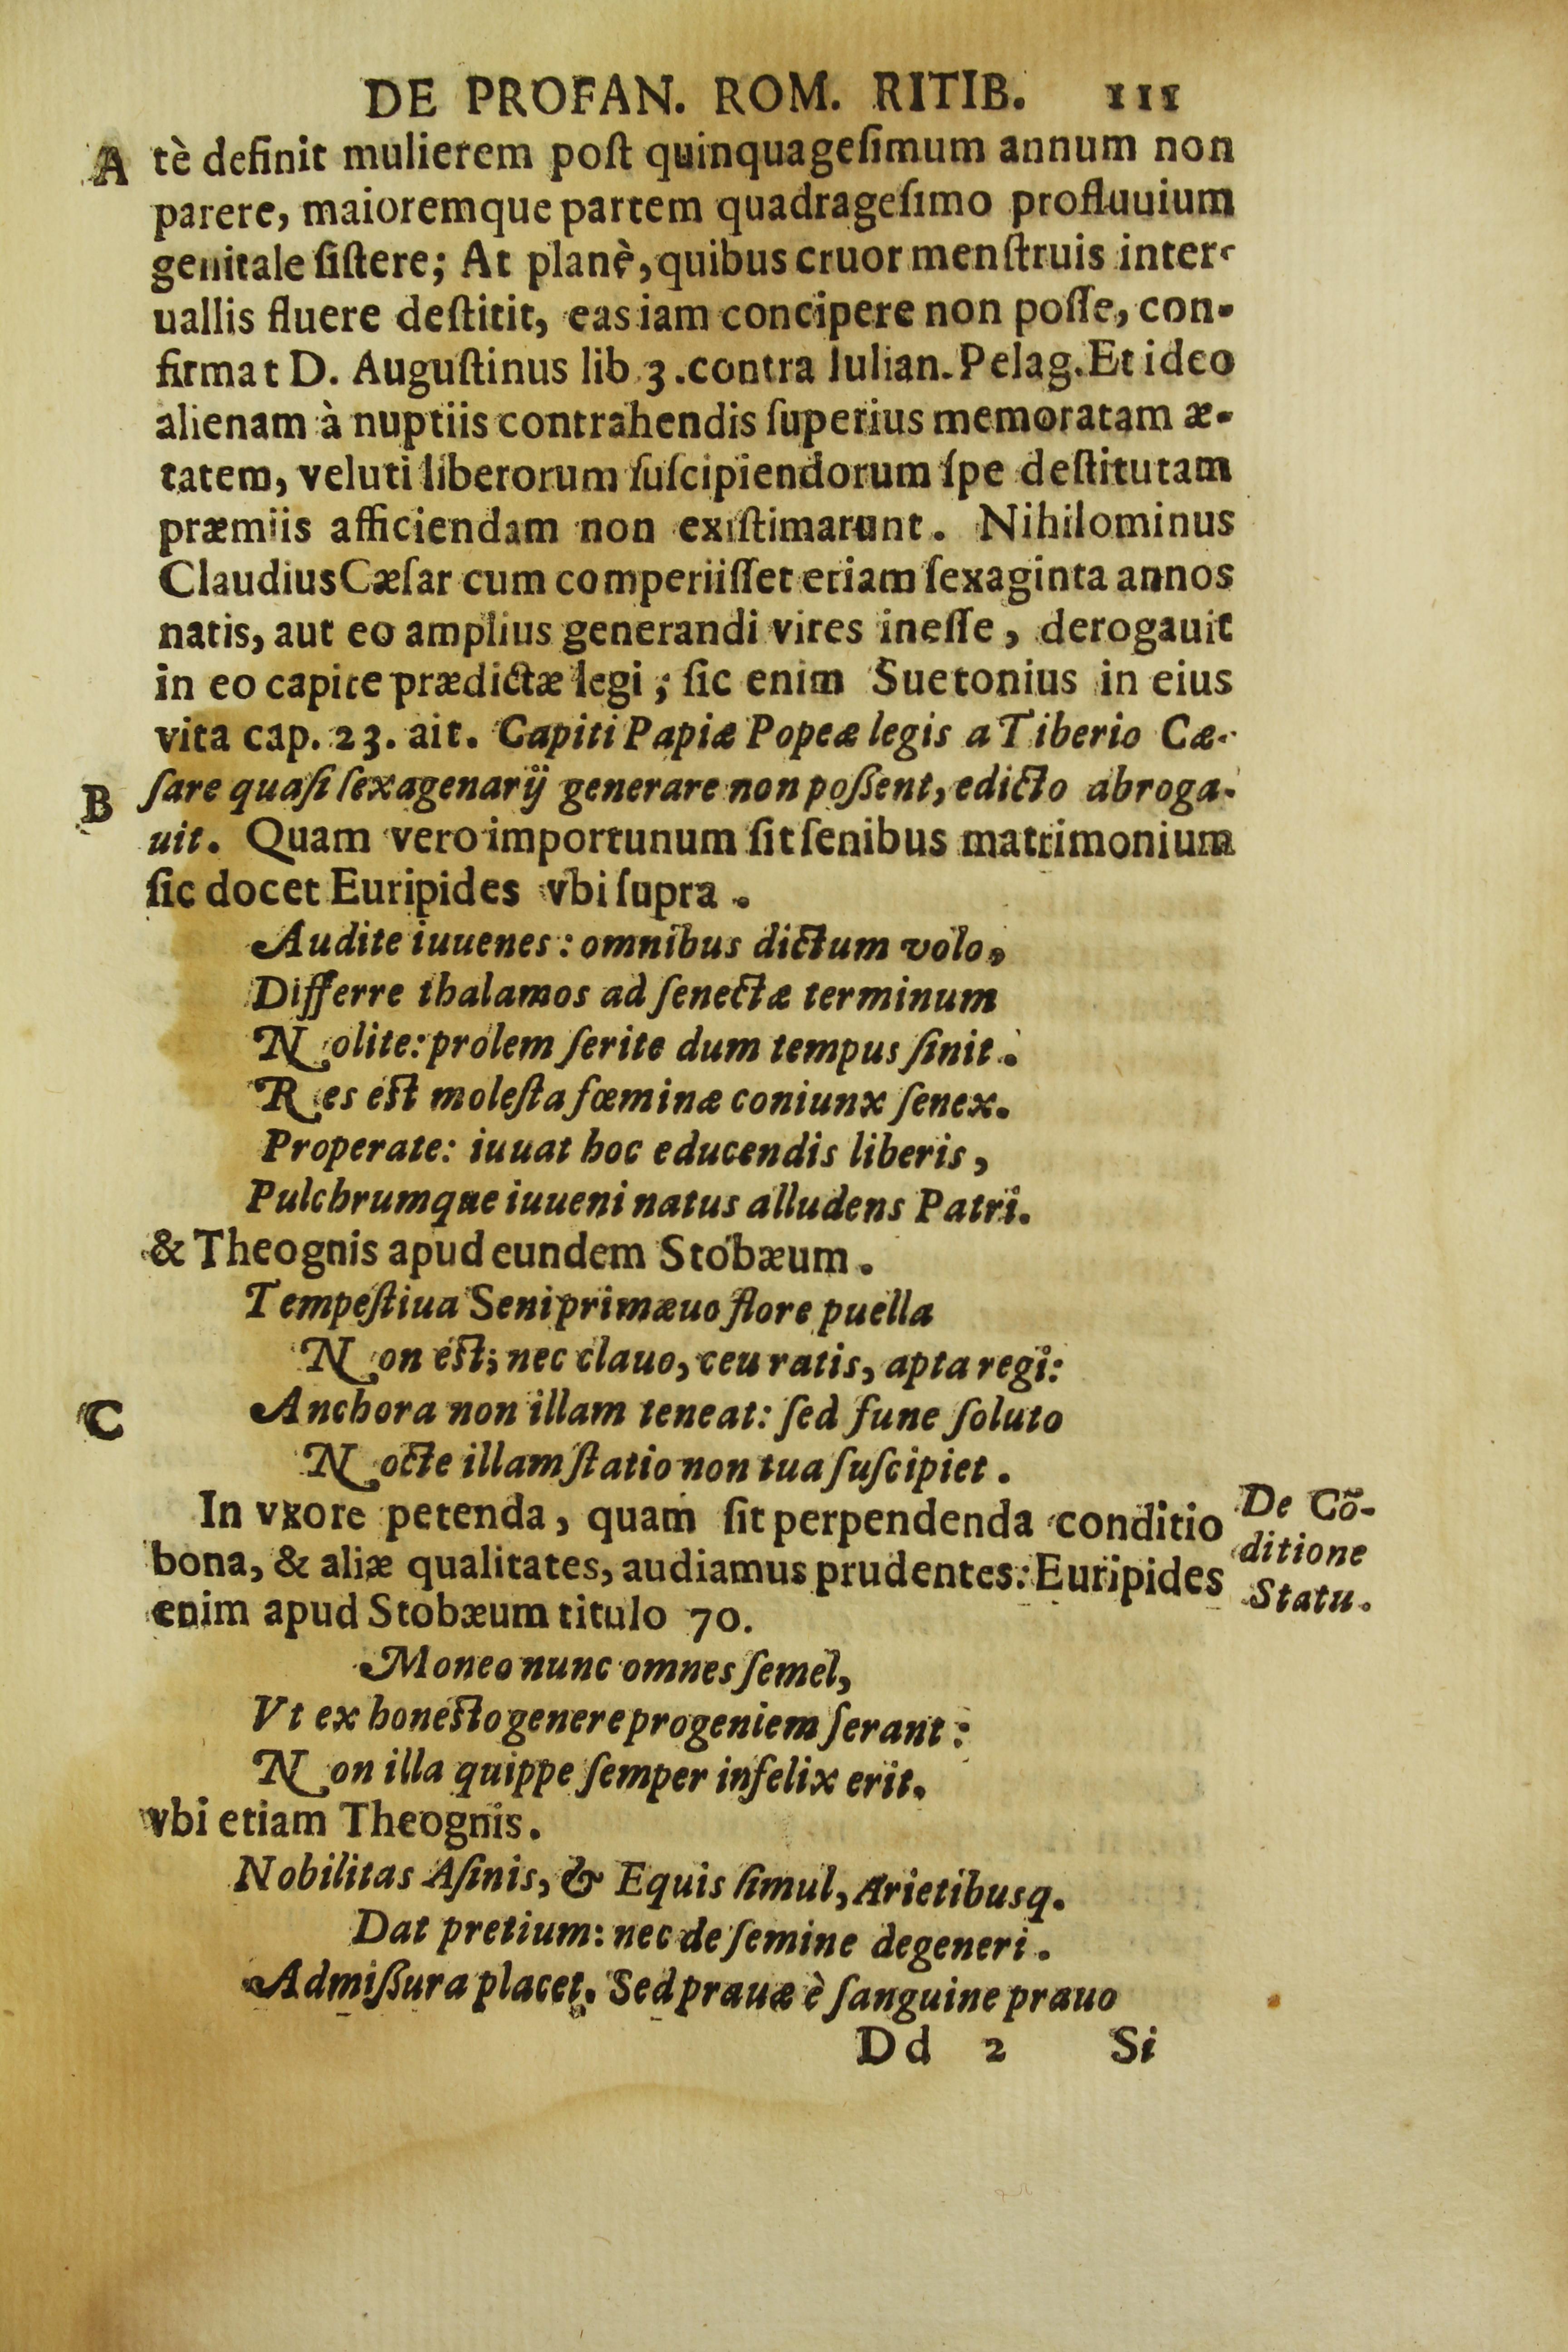 DE PROFAN. ROM. RITIB. 111
A tè definit mulierem poſt quinquageſimum annum non
parere, maioremque partem quadrageſimo profluuium
genitale ſiſtere; At planè, quibus cruor menſtruis inter-
uallis fluere deſtitit, eas iam concipere non poſſe, con-
firmat D. Auguſtinus lib. 3. contra Iulian. Pelag. Et ideo
alienam à nuptiis contrahendis ſuperius memoratam æ-
tatem, veluti liberorum ſuſcipiendorum ſpe deſtitutam
præmiis afficiendam non exiſtimarunt. Nihilominus
Claudius Cæſar cum comperiiſſet etiam ſexaginta annos
natis, aut eo amplius generandi vires ineſſe, derogauit
in eo capite prædictæ legi; ſic enim Suetonius in eius
vita cap. 23. ait. Capiti Papiæ Popeæ legis a Tiberio Cæ-
B ſare quaſi ſexagenarij generare non poßent, edicto abroga-
uit. Quam vero importunum ſit ſenibus matrimonium
ſic docet Euripides vbi ſupra.
Audite iuuenes: omnibus dictum volo,
Differre thalamos ad ſenectæ terminum
Nolite: prolem ſerite dum tempus ſinit.
Res eſt moleſta fœminæ coniunx ſenex.
Properate: iuuat hoc educendis liberis,
Pulchrumque iuueni natus alludens Patri.
& Theognis apud eundem Stobæum.
Tempeſtiua Seni primæuo flore puella
Non eſt; nec clauo, ceu ratis, apta regi:
C Anchora non illam teneat: ſed fune ſoluto
Nocte illam ſtatio non tua ſuſcipiet.
In vxore petenda, quam ſit perpendenda conditio
bona, & aliæ qualitates, audiamus prudentes: Euripides
enim apud Stobæum titulo 70.
De Cõ-
ditione
Statu.
Moneo nunc omnes ſemel,
Vt ex honeſto genere progeniem ſerant:
Non illa quippe ſemper infelix erit.
vbi etiam Theognis.
Nobilitas Aſinis, & Equis ſimul, Arietibusq.
Dat pretium: nec de ſemine degeneri.
Admißura placet. Sed prauæ è ſanguine prauo
Dd 2 Si